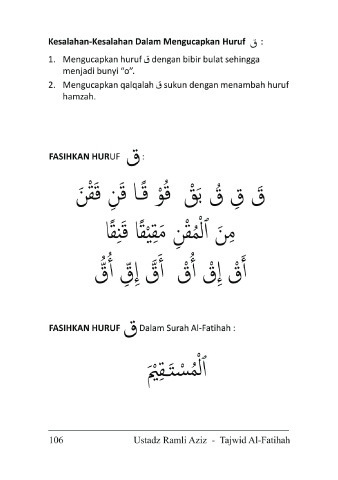 Kesalahan-Kesalahan Dalam Mengucapkan Huruf ق :
1. Mengucapkan huruf ق dengan bibir bulat sehingga
menjadi bunyi “o”.
2. Mengucapkan qalqalah ق sukun dengan menambah huruf
hamzah.
FASIHKAN HURUF ق :
قَ قِ قُ بَقْ قُوْ قًا قَنِ قَقْنَ
مِنَ ٱلْمُقْنِ مَقِيْقًا قَنِقًا
أَقْ إِقْ أُقْ أَقَّ إِقِّ أُقُّ
FASIHKAN HURUF ق Dalam Surah Al-Fatihah :
ٱلْمُسْتَقِيْمَ
106 Ustadz Ramli Aziz - Tajwid Al-Fatihah